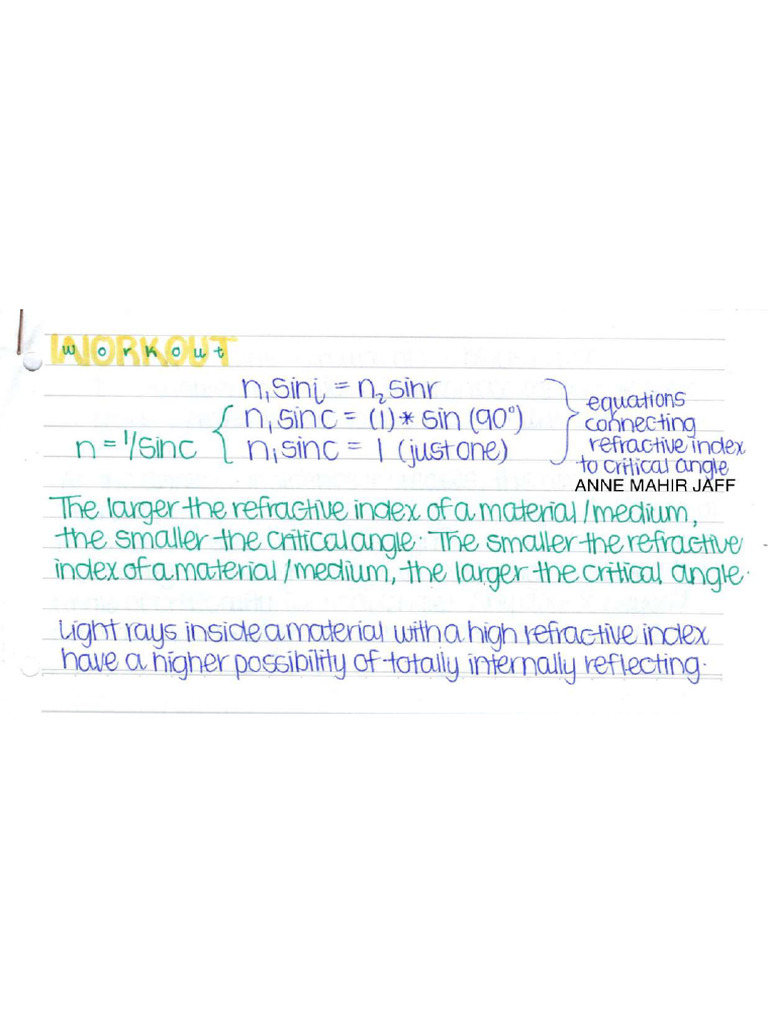 WORKOUT
workout
n₁sini = n₂sinr
n₁sinc = (1)* sin (90°)
n = 1/sinc
n₁sinc = 1 (just one)
equations
connecting
refractive index
to critical angle
ANNE MAHIR JAFF
The larger the refractive index of a material/medium,
the smaller the critical angle. The smaller the refractive
index of a material/medium, the larger the critical angle.
Light rays inside a material with a high refractive index
have a higher possibility of totally internally reflecting.